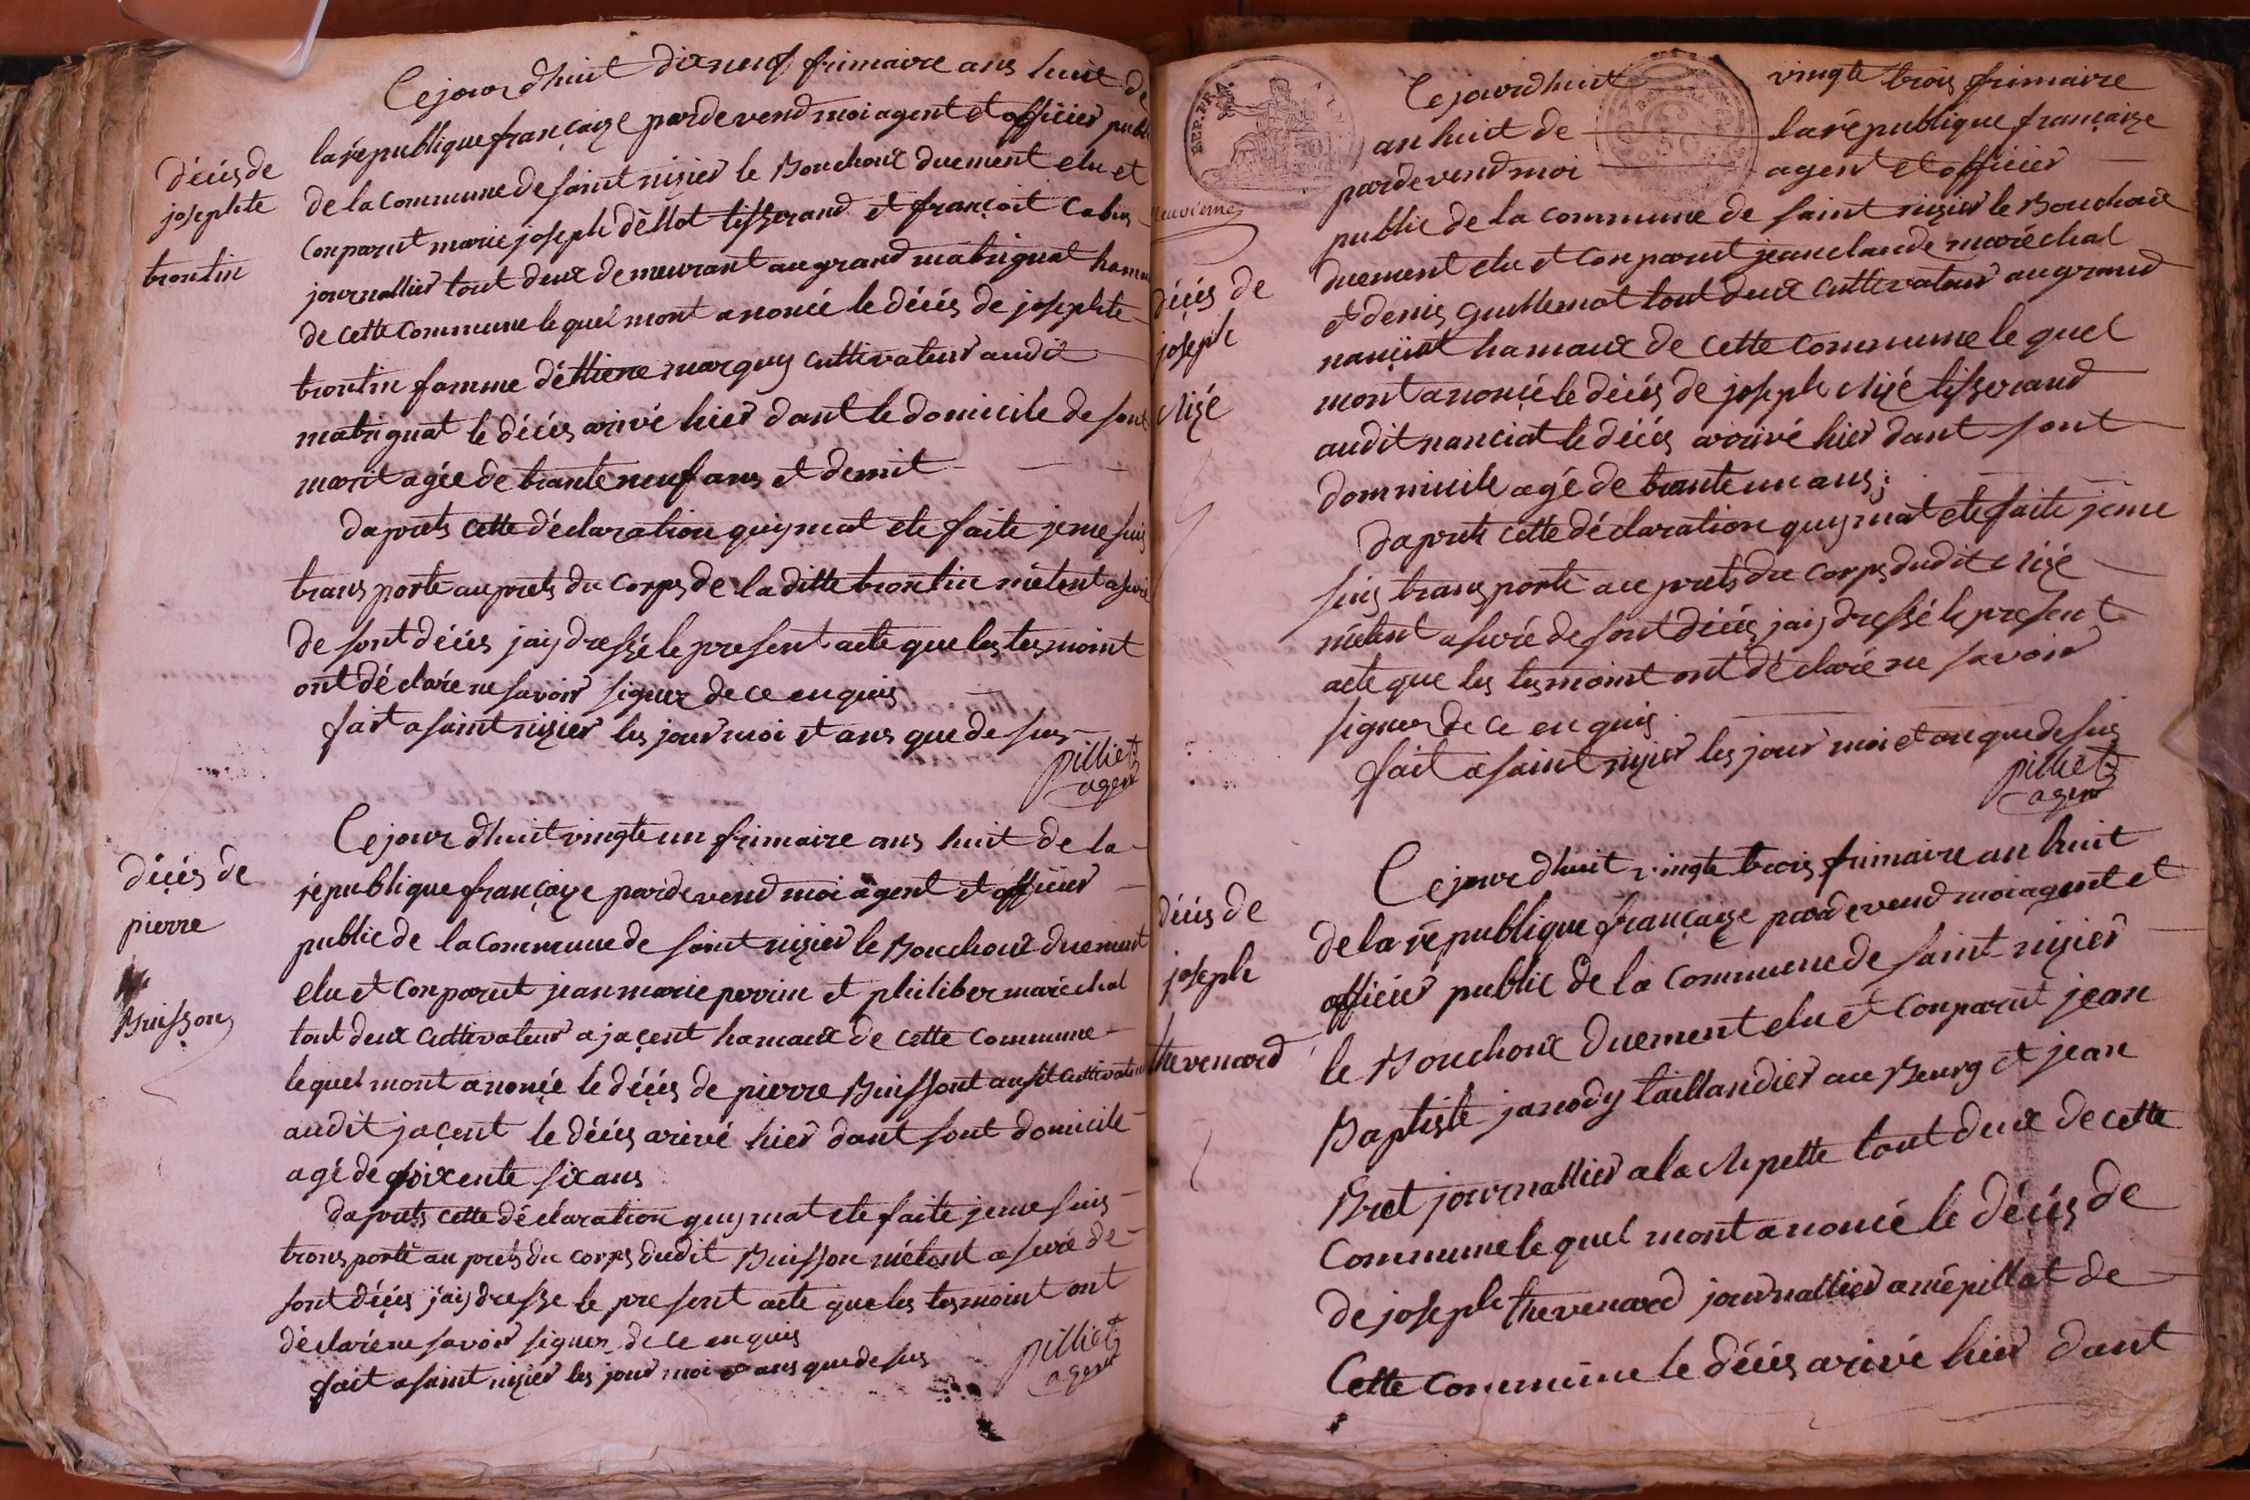 Cejour dhuit dixneuf frimaire ans huit de
la république françaize pardevend moi agent et officier publi
décés de
josephte
trontin
de la commune de saint nizier le Bouchoux duement elu et
conparut marie joseph dèllot tisserand et françoit
journallier tout deux demeurant au grand matrignat hamau
de cette commune le quel mont anoncé le décés de josephte
trontin famme déttiene marquy cultivateur audit
matrignat le décés arivé hier dant le domicile de sont
marit agée de trante neuf ans et demit
daprets cette déclaration quiymat ete faite jeme suis
transporté auprets du corps de la ditte trontin mètent asuré
de sont décés jaij dressé le present acte que les tesmoint
ont déclaré ne savoir signer de ce enquis
fait a saint nizier les jour moi et ans que de sus
pilliet
agent
Cejour dhuit vingte un frimaire ans huit de la
décés de
pierre
Buisson
république françaize pardevend moi agent et officier
public de la commune de saint nizier le Bouchoux duement
elu et conparut jean marie perrin et philiber maréchal
tout deux cultivateur a jaçent hamaux de cette commune
lequel mont anonçé le déçés de pierre Buissont ausit cultivateur
audit jaçent le décés arivé hier dant sont domicile
agé de soixente six ans
daprets cette déclaration quiymat ete faite jeme suis
transporté au prets du corps dudit Buisson mètent asuré de
sont décés jaij dresse le present acte que les tesmoint ont
déclaré ne savoir signer de ce enquis
fait a saint nizier les jour moi et ans que de sus
pilliet
agent
REP. FRA.
Cejourdhuit vingte trois frimaire
an huit de la république françaize
pardevend moi agent et officier
neuvieme
public de la commune de saint nizier le Bouchoux
décés de
joseph
Nizé
duement elu et conparut jean claude maréchal
et denis guillemot tout deux cultivateur au grand
nanciat hamaux de cette commune le quel
mont anoncé le décés de joseph Nizé tisserand
audit nanciat le décés arrivé hier dant sont
dommicile agé de trante un ans;
daprets cette déclaration quiymat ete faite jeme
suis transporté au prets du corps dudit Nizé
mètent asuré de sont décés jaij dressé le present
acte que les tesmoint ont déclaré ne savoir
signer de ce enquis
fait a saint nizier les jour moi et an que de sus
pilliet
agent
Cejour dhuit vingte trois frimaire an huit
décés de
joseph
thevenard
de la république françaize pardevend moi agent et
officier public de la commune de saint nizier
le Bouchoux duement elu et conparut jean
Baptiste janody taillandier au Bourg et jean
Bret journallier a la Nepette tout deux de cette
commune le quel mont anoncé le décés de
de joseph thevenard journallier a mépillat de
Cette commune le décés arivé hier dant